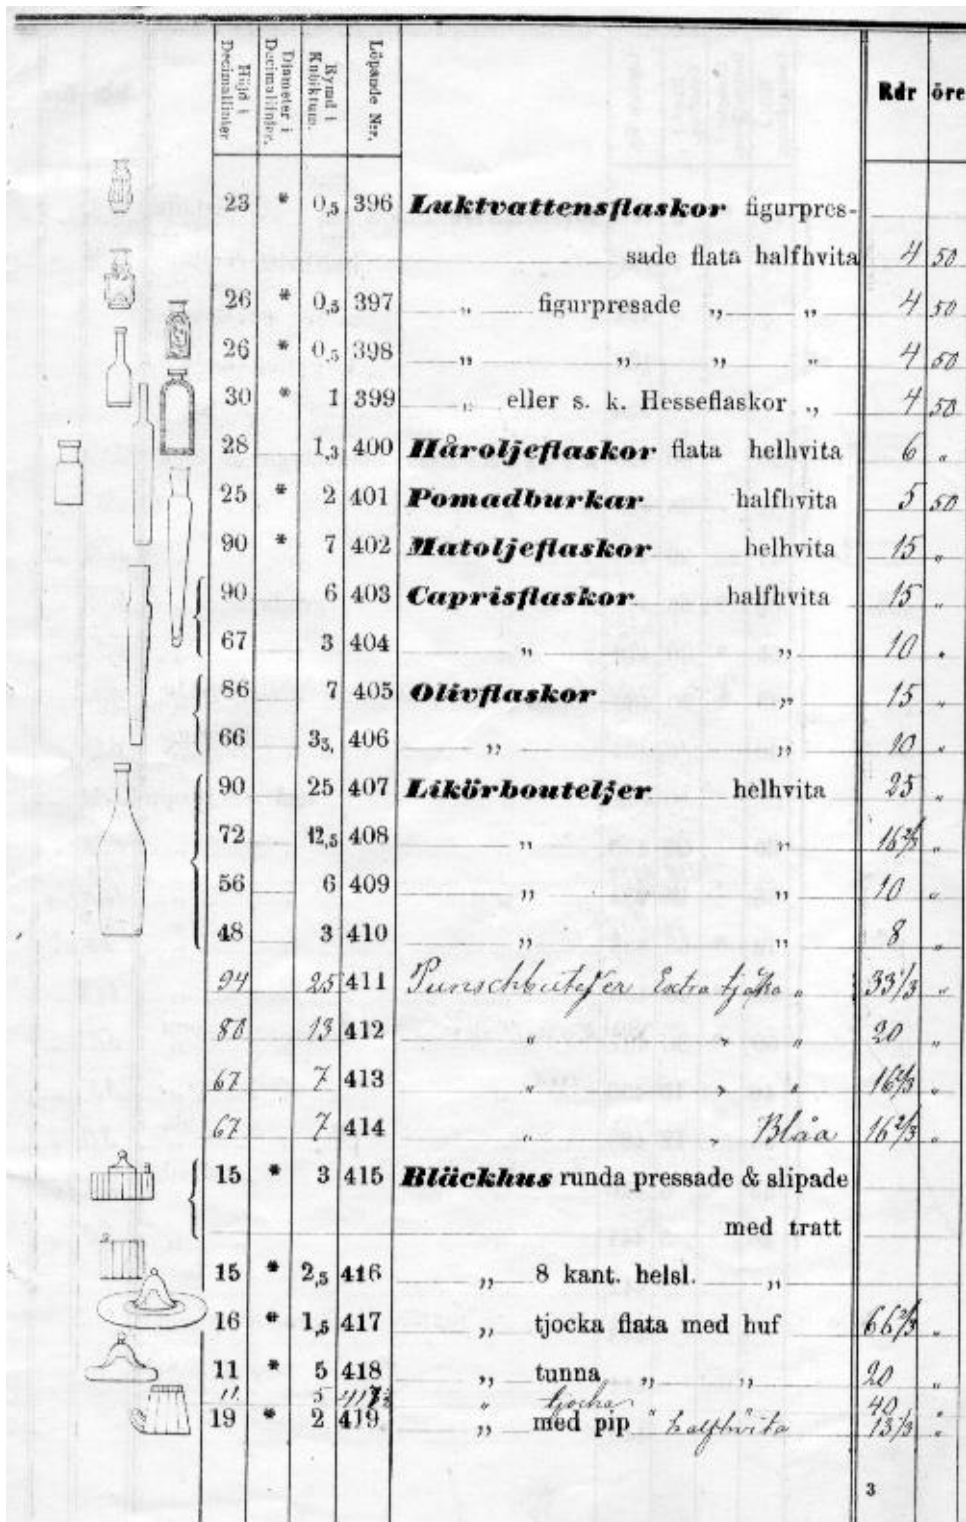 Höjd i Decimallinier Diameter i Decimallinier. Rymd i Kubiktum. Löpande N:r. Rdr öre
23 * 0,5 396 Luktvattensflaskor figurpres-
sade flata halfhvita 4 50
26 * 0,5 397 „ figurpresade „ „ 4 50
26 * 0,5 398 „ „ „ „ 4 50
30 * 1 399 „ eller s. k. Hesseflaskor „ 4 50
28 1,3 400 Håroljeflaskor flata helhvita 6 „
25 * 2 401 Pomadburkar halfhvita 5 50
90 * 7 402 Matoljeflaskor helhvita 15 „
90 6 403 Caprisflaskor halfhvita 15 „
67 3 404 „ „ 10 „
86 7 405 Olivflaskor „ 15 „
66 33, 406 „ „ 10 „
90 25 407 Likörbouteljer helhvita 25 „
72 12,5 408 „ „ 16 2/3 „
56 6 409 „ „ 10 „
48 3 410 „ „ 8 „
94 25 411 Punschbuteljer Extra tjocka „ 33 1/3 „
80 13 412 „ „ „ 20 „
67 7 413 „ „ „ 16 2/3 „
67 7 414 „ „ Blåa 16 2/3 „
15 * 3 415 Bläckhus runda pressade & slipade
med tratt
15 * 2,5 416 „ 8 kant. helsl. „
16 * 1,5 417 „ tjocka flata med huf 66 2/3 „
11 * 5 418 „ tunna „ „ 20 „
11 5 „ tjocka „ 40 „
19 * 2 419 „ med pip halfhvita 13 1/3 „
3